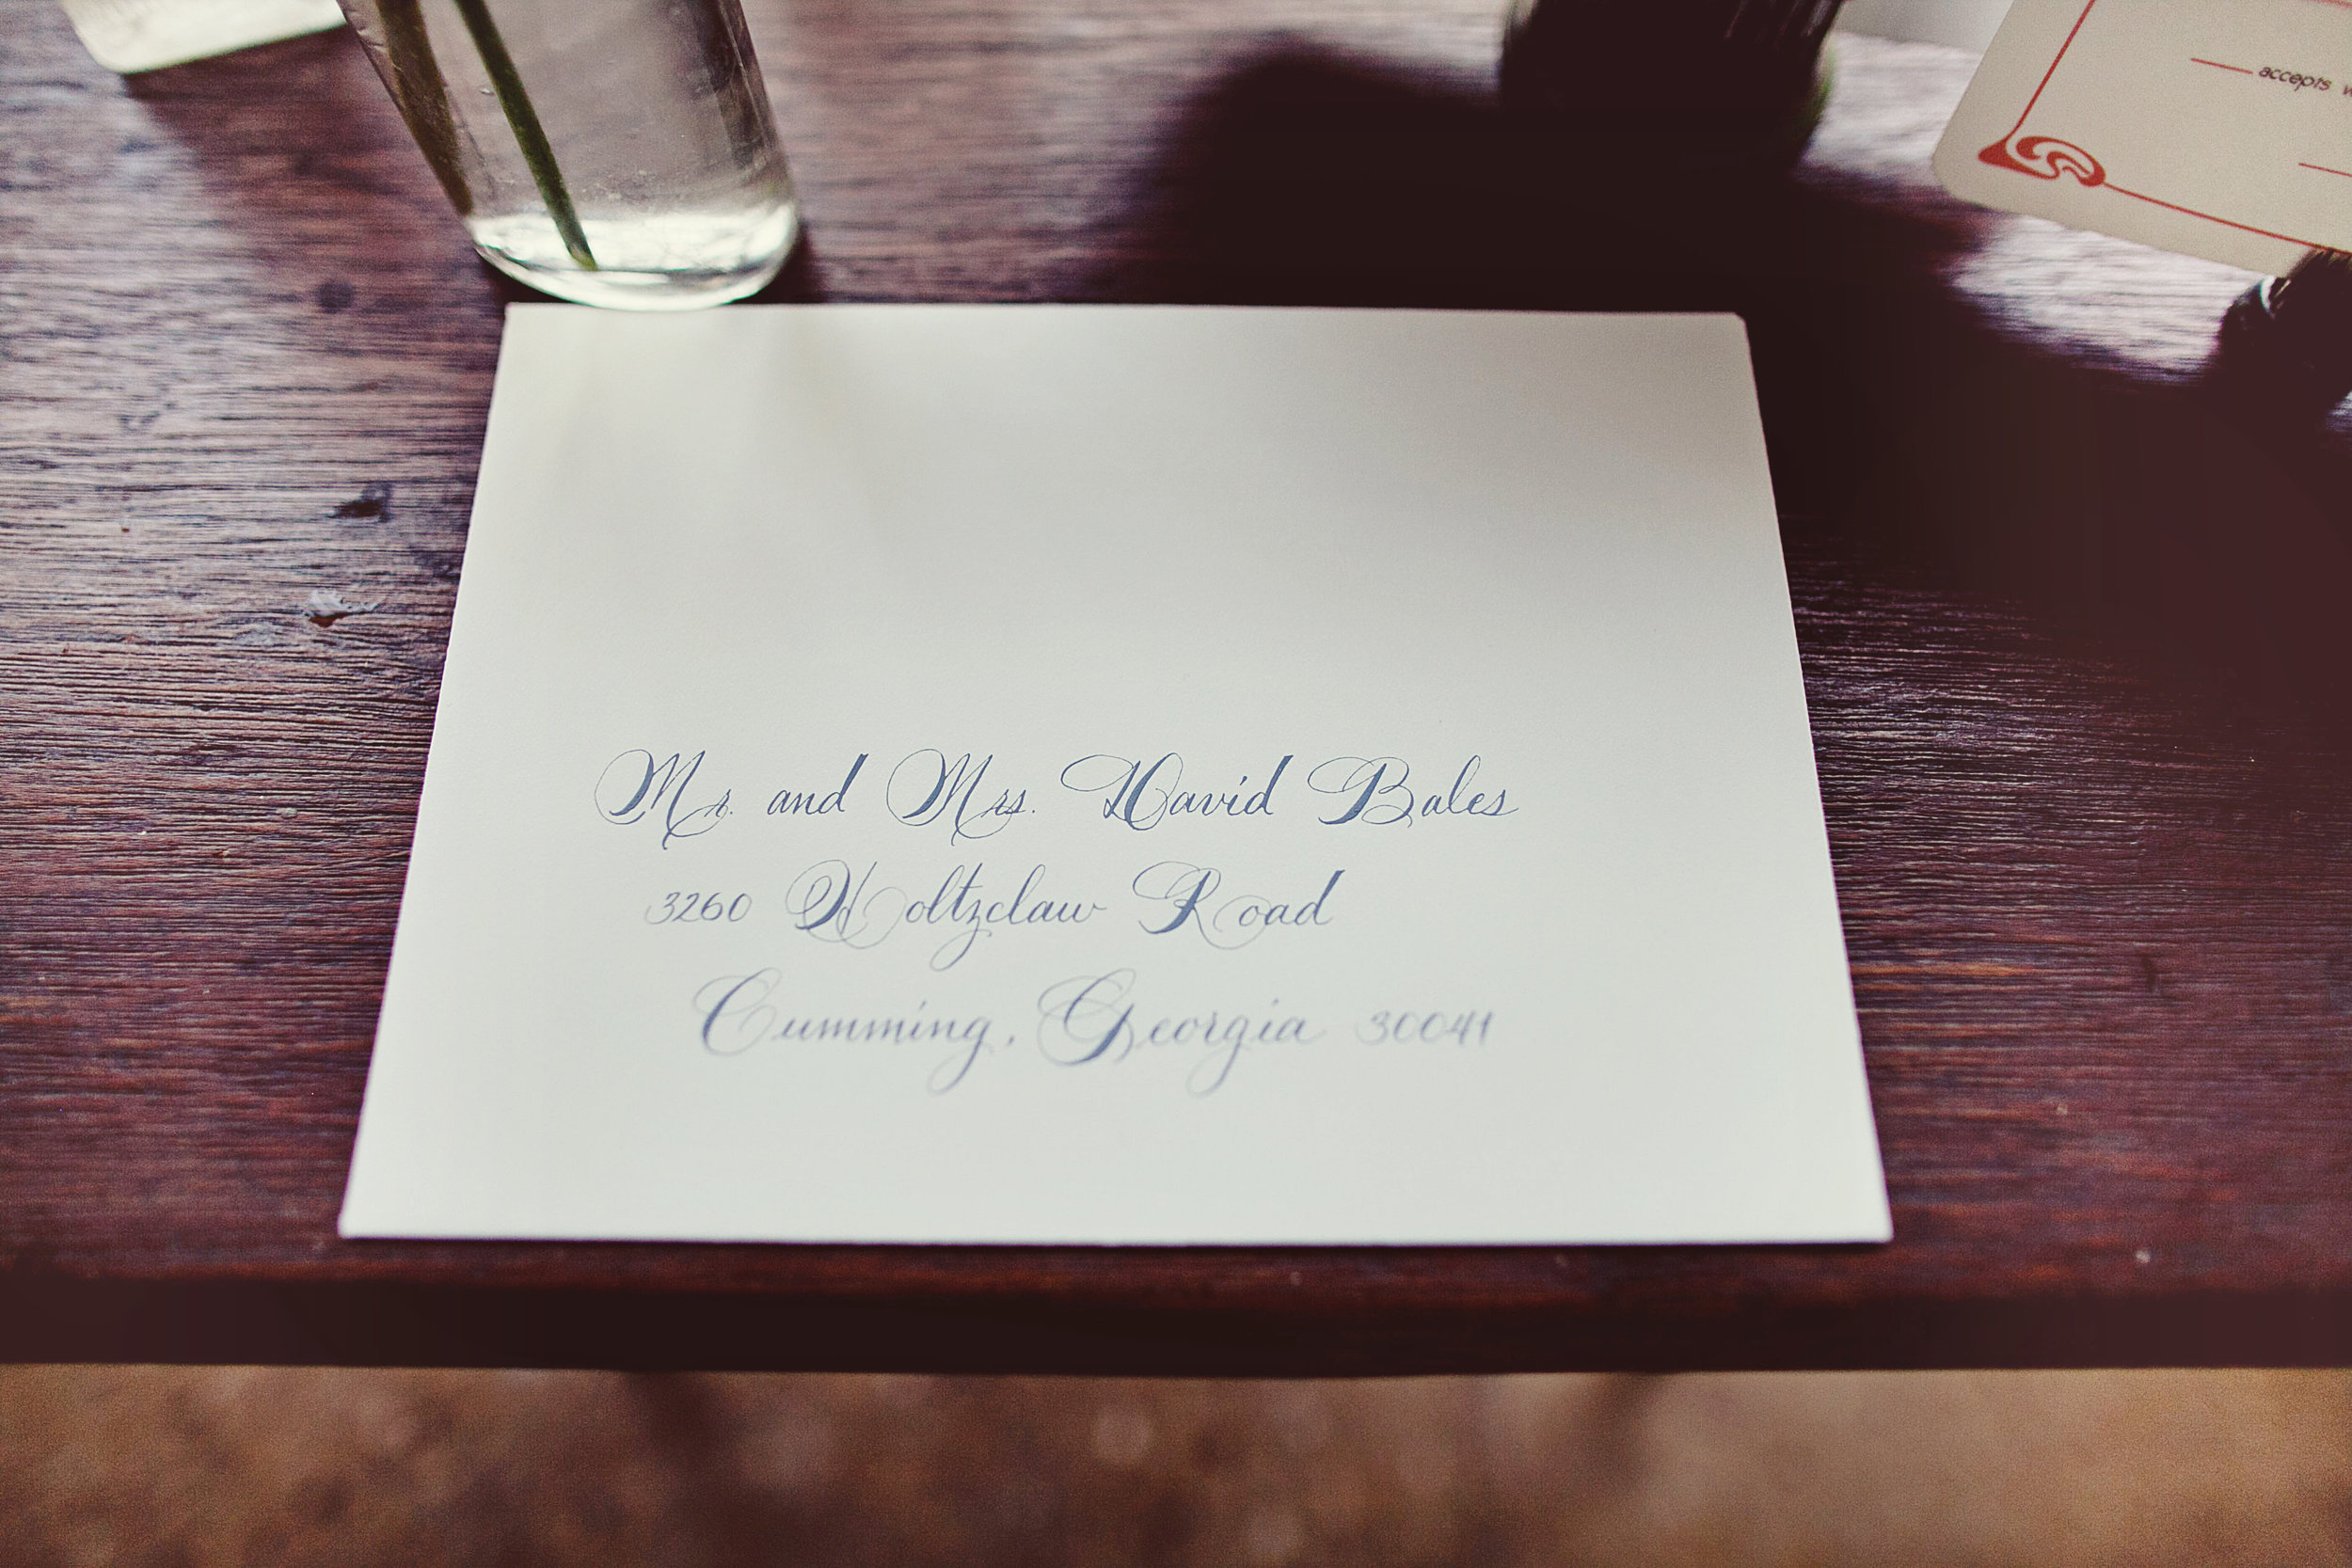 accepts
Mr. and Mrs. David Bales
3260 Holtzclaw Road
Cumming, Georgia 30041